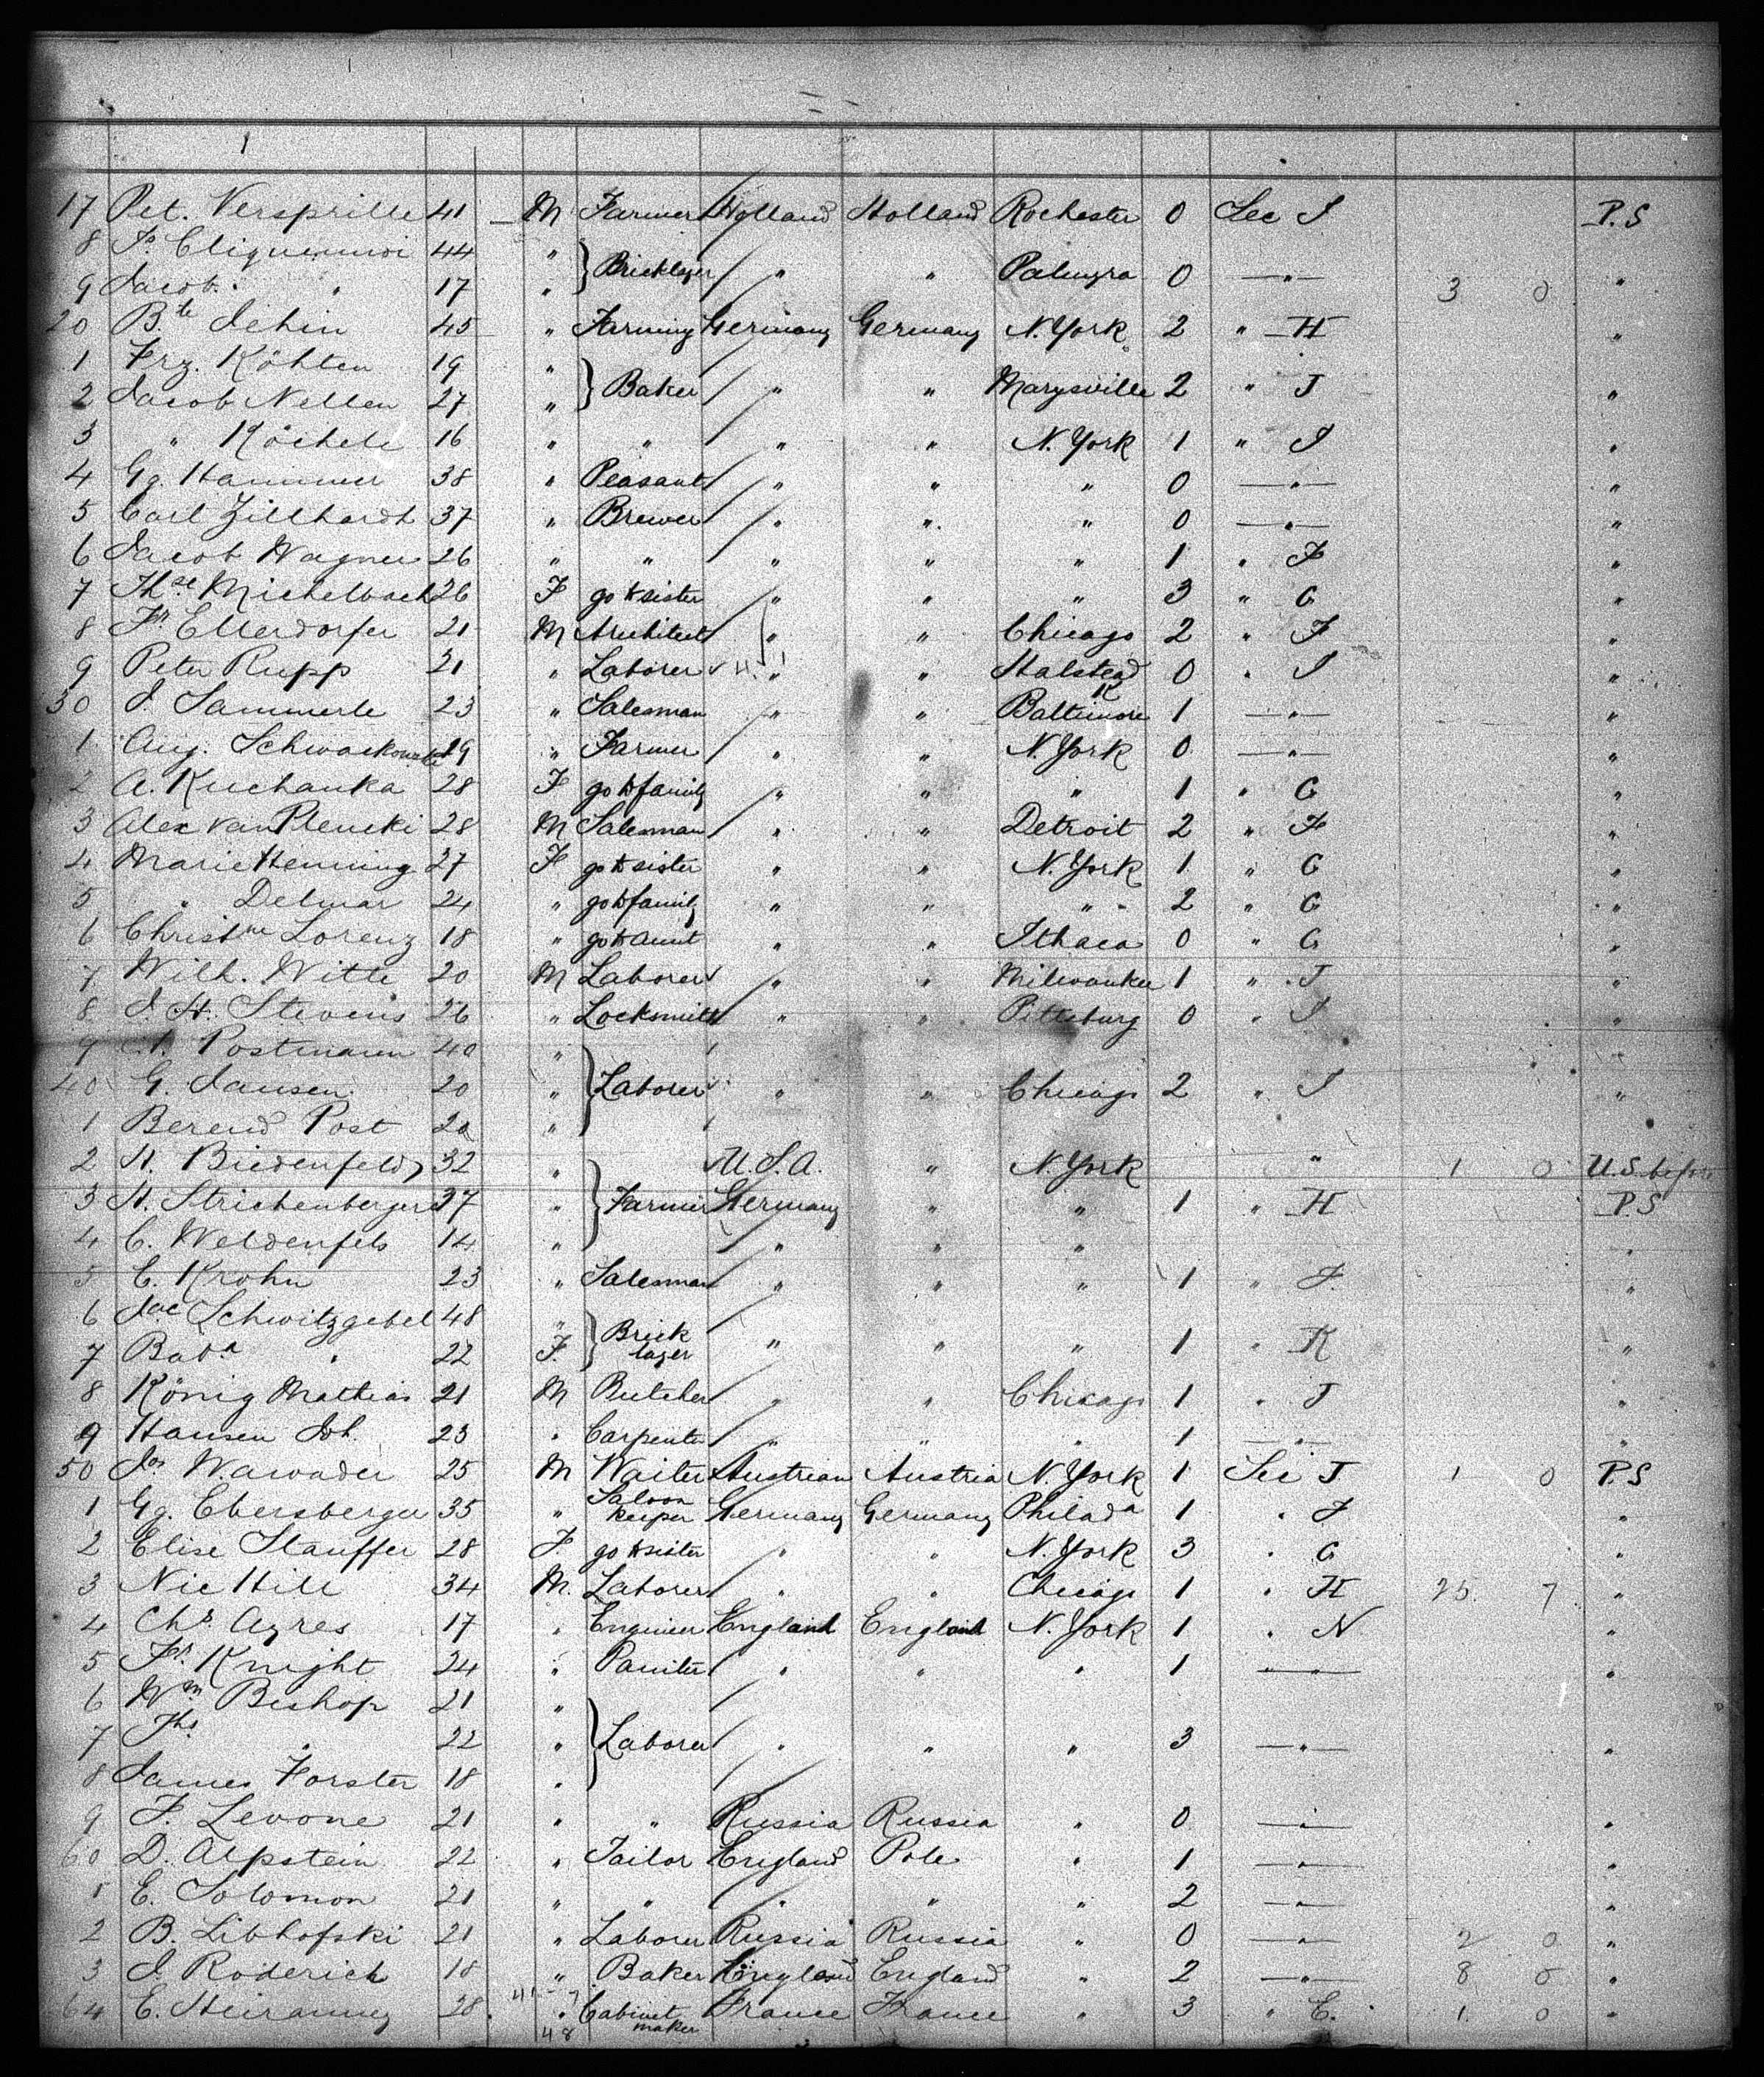 17 Pet. Versprille 41 M Farmer Holland Holland Rochester 0 Sec I P.S
8 44 "
} Bricklayer " " Palmyra 0 —"—
9 Jacob " 17 " 3 0 "
20 B.te Jehin 45 " Farming Germany Germany N. York 2 " H "
1 Frz. Köhten 19 "
} Baker " " Marysville 2 " J
2 Jacob Nellen 27 " "
3 " Köchele 16 " " " " N. York 1 " I "
4 Gg. Hammer 38 " Peasant " " " 0 —"— "
5 Carl Zillhardt 37 " Brewer " " " 0 —"— "
6 Jacob Wagner 26 " " " " " 1 " F "
7 Th.se Michelbach 26 F go to sister " " " 3 " G "
8 Fr Ellerdorfer 21 M Architect " " Chicago 2 " F "
9 Peter Rupp 21 " Laborer " " Halstead K 0 " I "
30 J. Sammerle 23 " Salesman " " Baltimore 1 —"— "
1 Aug. Schwackowski 29 " Farmer " " N. York 0 —"— "
2 A. Kuchanka 28 F go to family " " " 1 " G "
3 Alex van Plencki 28 M Salesman " " Detroit 2 " F "
4 Marie Henning 27 F go to sister " " N. York 1 " G "
5 " Delmar 24 " go to family " " " 2 " G "
6 Christne Lorenz 18 " go to aunt " " Ithaca 0 " G "
7 Wilh. Witte 20 M Laborer " " Milwaukee 1 " J "
8 J. H. Stevens 26 " Locksmith " " Pittsburg 0 " I "
9 Postmann 40 "
40 G. Jansen 20 " } Laborer " " Chicago 2 " I "
1 Berend Post 20 "
2 H. Biedenfeld 32 " U.S.A. " N. York " 1 0 U.S.
3 H. Strichenberger 37 " } Farmer Germany " " 1 " H P.S
4 C. Weldenfels 14 " " " " "
5 C. Krohn 23 " Salesman " " " 1 " J. "
6 Jac Schwitzgebel 48 "
} Brick layer " " " 1 " K "
7 Bab.a " 22 F.
8 König Mathias 21 M Butcher " " Chicago 1 " J "
9 Hansen Joh. 23 " Carpenter " " " 1 —"— "
50 Jos Wawader 25 M Waiter Austrian Austria N. York 1 Sec J 1 0 P.S
1 Gg. Ebersberger 35 " Saloon keeper Germany Germany Philada 1 " J "
2 Elise Stauffer 28 F. go to sister " " N. York 3 " G "
3 Nic Hill 34 M. Laborer " " Chicago 1 " H 25. 7 "
4 Chs Ayres 17 " Engineer England England N. York 1 " N "
5 Fr. Knight 24 " Painter " " " 1 —"— "
6 Wm Bishop 21 "
7 Ths " 22 " } Laborer " " " 3 —"— "
8 James Forster 18 "
9 F. Levone 21 " " Russia Russia " 0 —"— "
60 D. Alpstein 22 " Tailor England Pole " 1 —"— "
1 E. Solomon 21 " " " " " 2 —"— "
2 B. Libhofski 21 " Laborer Russia Russia " 0 —"— 2 0 "
3 J. Roderich 18 " Baker England England " 2 —"— 8 0 "
64 28 " Cabinet maker France France " 3 " E. 1. 0 "
48